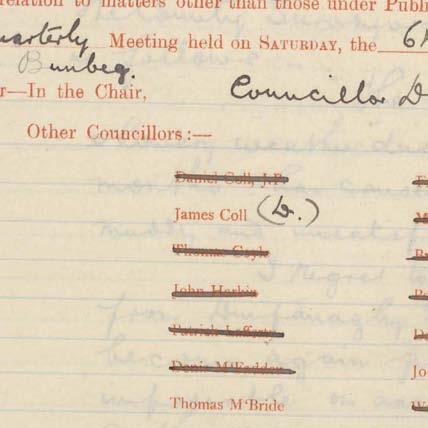 relation to matters other than those under Publ
uarterly Meeting held on SATURDAY, the 6
Bunbeg.
r—In the Chair, Councillor D
Other Councillors :—
Daniel Coll, J.P.
James Coll (Dr.)
Thomas Coyle
John Harkin
Patrick Lafferty
Denis M'Fadden
Jo
Thomas M'Bride